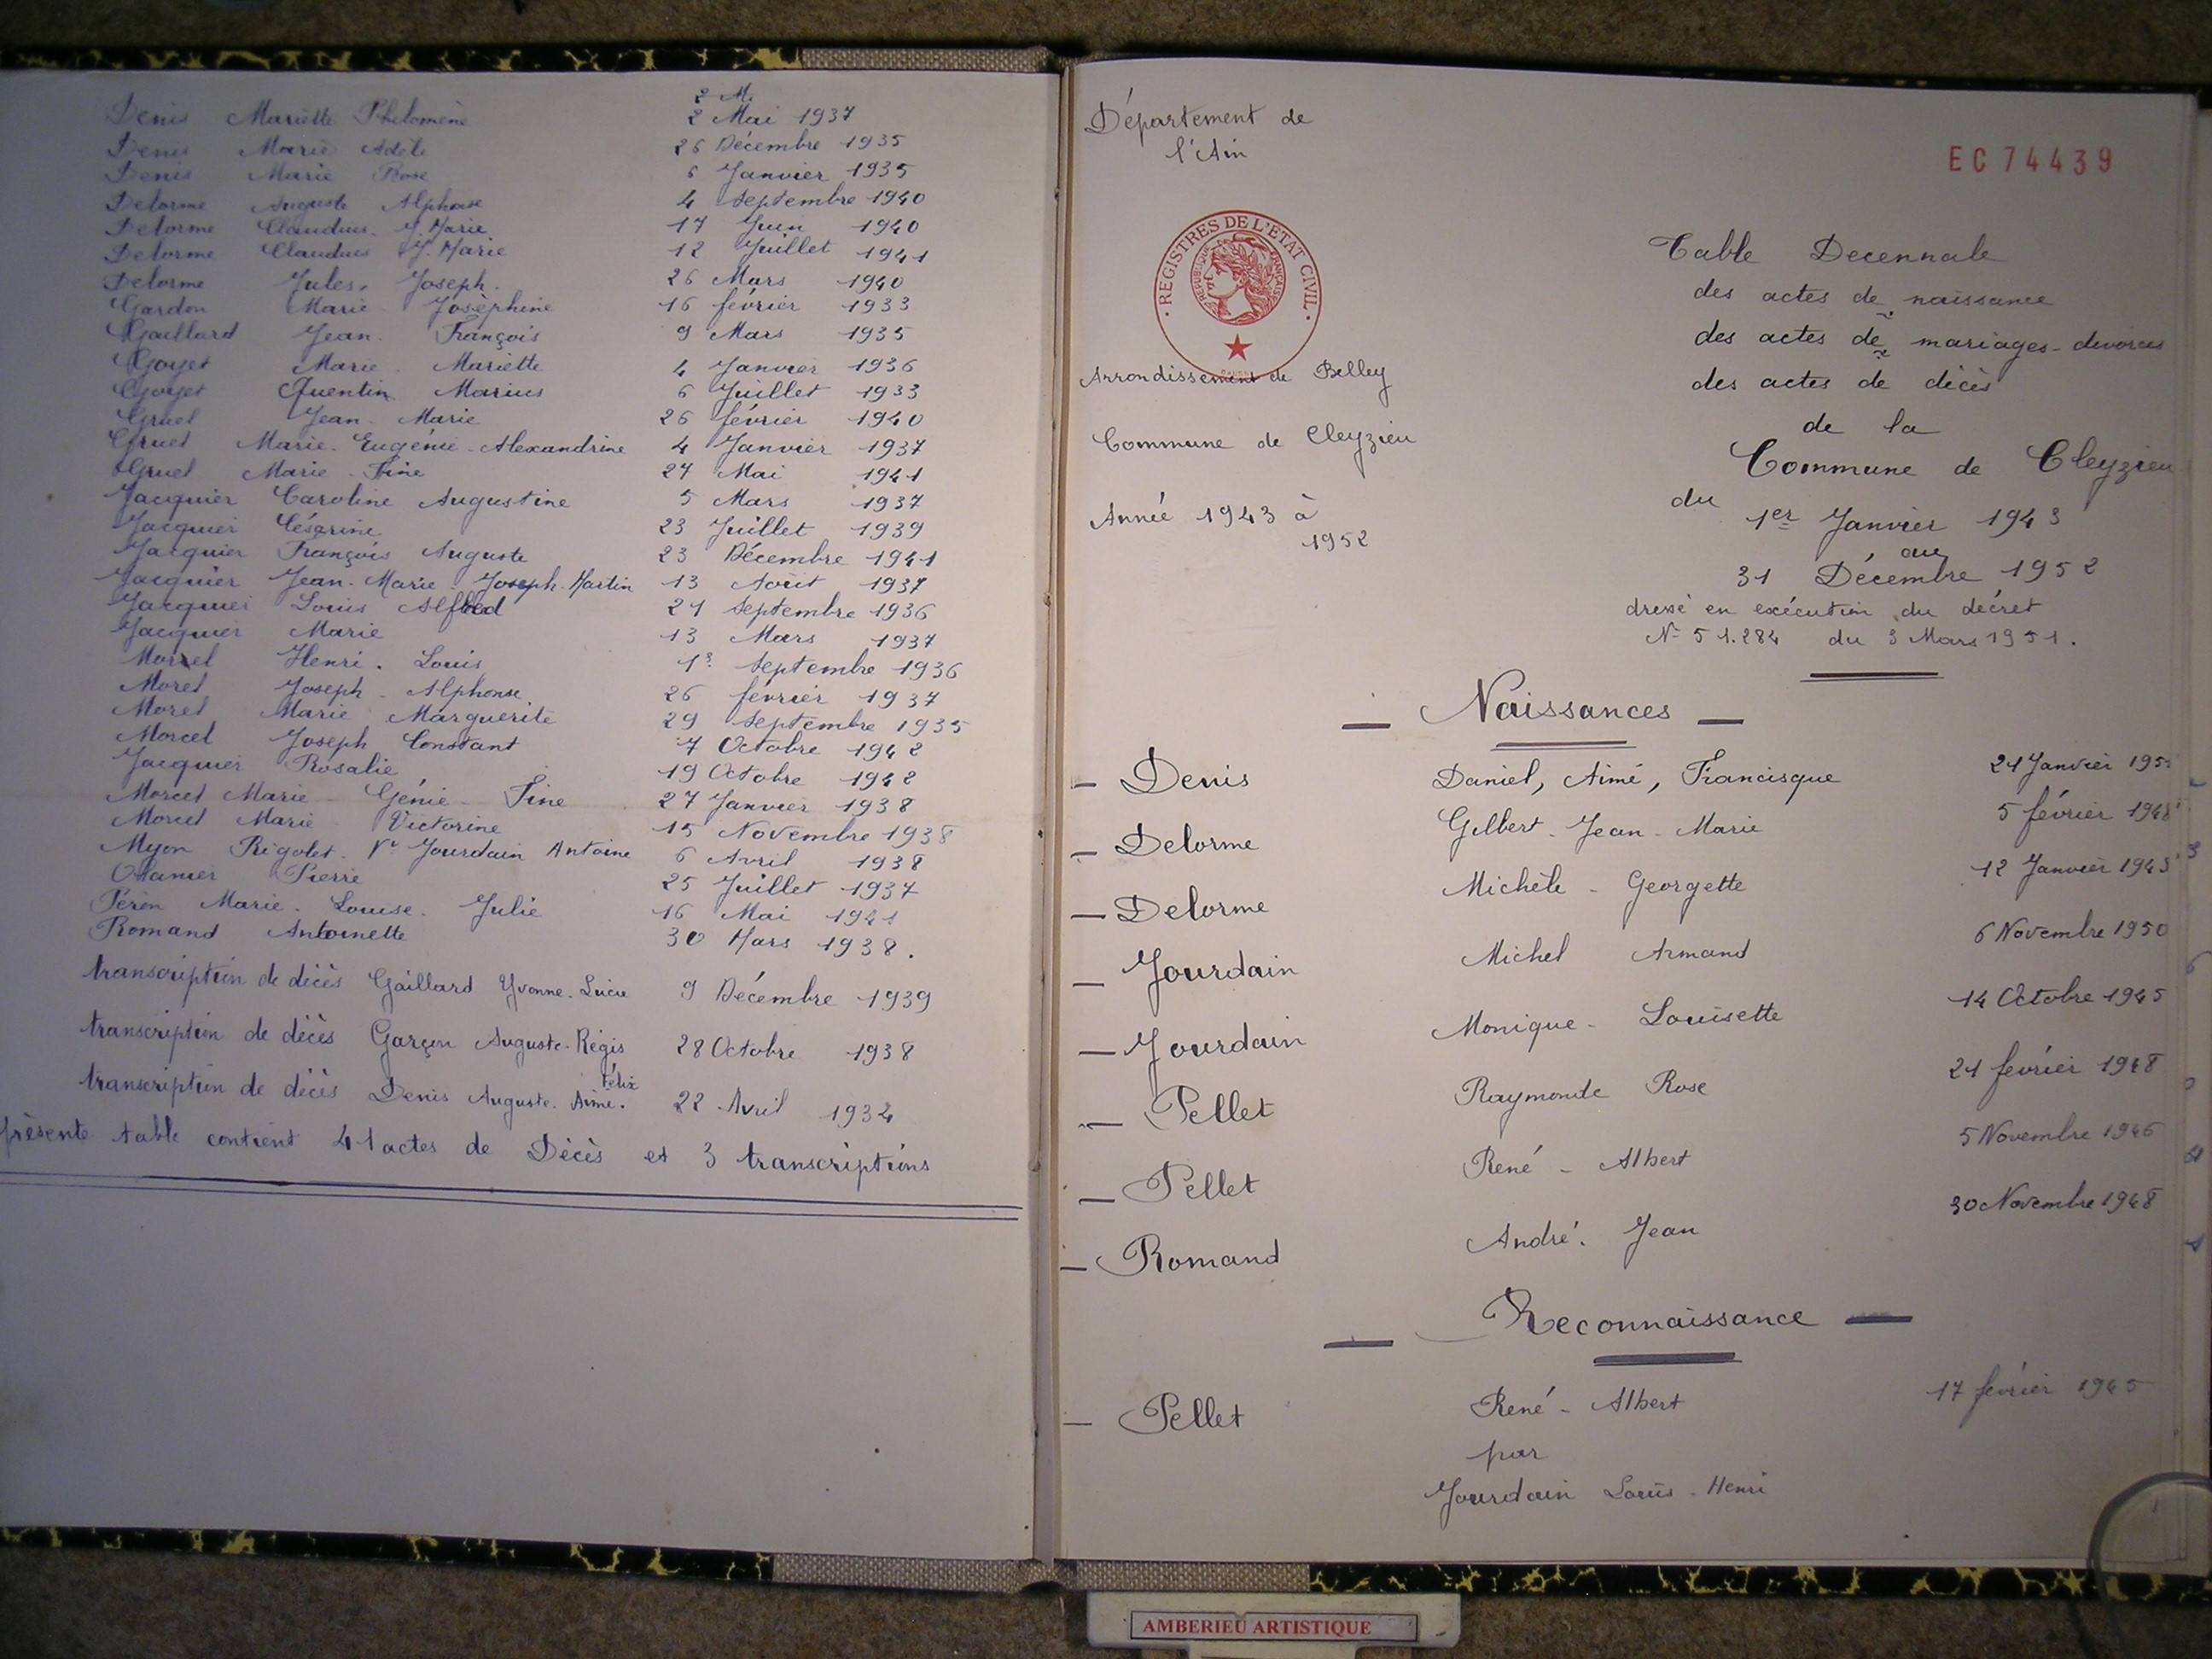 2 M.
Denis Mariette Philomène 2 Mai 1937
Denis Marie Adèle 26 Décembre 1935
Denis Marie Rose 6 Janvier 1935
Delorme Auguste Alphonse 4 Septembre 1940
Delorme Claudius. J. Marie 17 Juin 1940
Delorme Claudius J. Marie 12 Juillet 1941
Delorme Jules. Joseph. 26 Mars 1940
Gardon Marie - Josèphine 16 février 1933
Gaillard Jean. François 9 Mars 1935
Goyet Marie. Mariette 4 Janvier 1936
Goyet Quentin Marius 6 Juillet 1933
Gruel Jean. Marie 26 février 1940
Gruel Marie. Eugénie - Alexandrine 4 Janvier 1937
Gruel Marie - Fine 27 Mai 1941
Jacquier Caroline Augustine 5 Mars 1937
Jacquier Césarine 23 Juillet 1939
Jacquier François Auguste 23 Décembre 1941
Jacquier Jean-Marie - Joseph. Martin 13 Août 1937
Jacquier Louis Alfred 21 Septembre 1936
Jacquier Marie 13 Mars 1937
Morel Henri. Louis Septembre 1936
Morel Joseph - Alphonse 26 février 1937
Morel Marie Marguerite 29 Septembre 1935
Morcel Joseph Constant 7 Octobre 1942
Jacquier Rosalie 19 Octobre 1942
Morcel Marie - Génie - Fine 27 Janvier 1938
Morcel Marie Victorine 15 Novembre 1938
Myon Rigolet. Vve Jourdain Antoine 6 Avril 1938
Pierre 25 Juillet 1937
Pérén Marie. Louise. Julie 16 Mai 1941
Romand Antoinette 30 Mars 1938.
transcription de décès Gaillard Yvonne. Lucie 9 Décembre 1939
transcription de décès Garçon Auguste-Régis 28 Octobre 1938
transcription de décès Denis Auguste. Aimé. Félix 22 Avril 1934
présente table contient 41 actes de Décès et 3 transcriptions
Département de
l'Ain
EC74439
REGISTRES DE L'ETAT CIVIL
REPUBLIQUE FRANÇAISE
Arrondissement de Belley
Commune de Cleyzieu
Année 1943 à
1952
Table Decennale
des actes de naissance
des actes de mariages - divorces
des actes de décès
de la
Commune de Cleyzieu
du
1er Janvier 1943
au
31 Décembre 1952
dressé en exécution du décret
N° 51.284 du 3 Mars 1951.
— Naissances —
— Denis Daniel, Aimé, Francisque 21 Janvier
— Delorme Gilbert - Jean - Marie 5 février 1948
— Delorme Michèle - Georgette 12 Janvier 1943
— Jourdain Michel Armand 6 Novembre 1950
— Jourdain Monique - Louisette 14 Octobre 1945
— Pellet Raymonde Rose 21 février 1948
— Pellet René - Albert 5 Novembre 1946
— Romand André. Jean 30 Novembre 1948
— Reconnaissance —
— Pellet René - Albert 17 février 1945
par
Jourdain Louis - Henri
AMBERIEU ARTISTIQUE